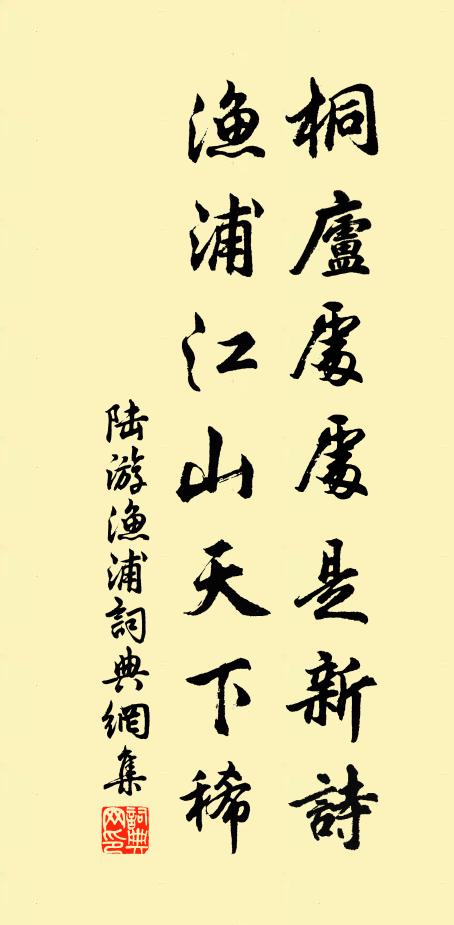 桐廬處處是新詩
漁浦江山天下稀
陆游漁浦詞典網集
詞典
网印